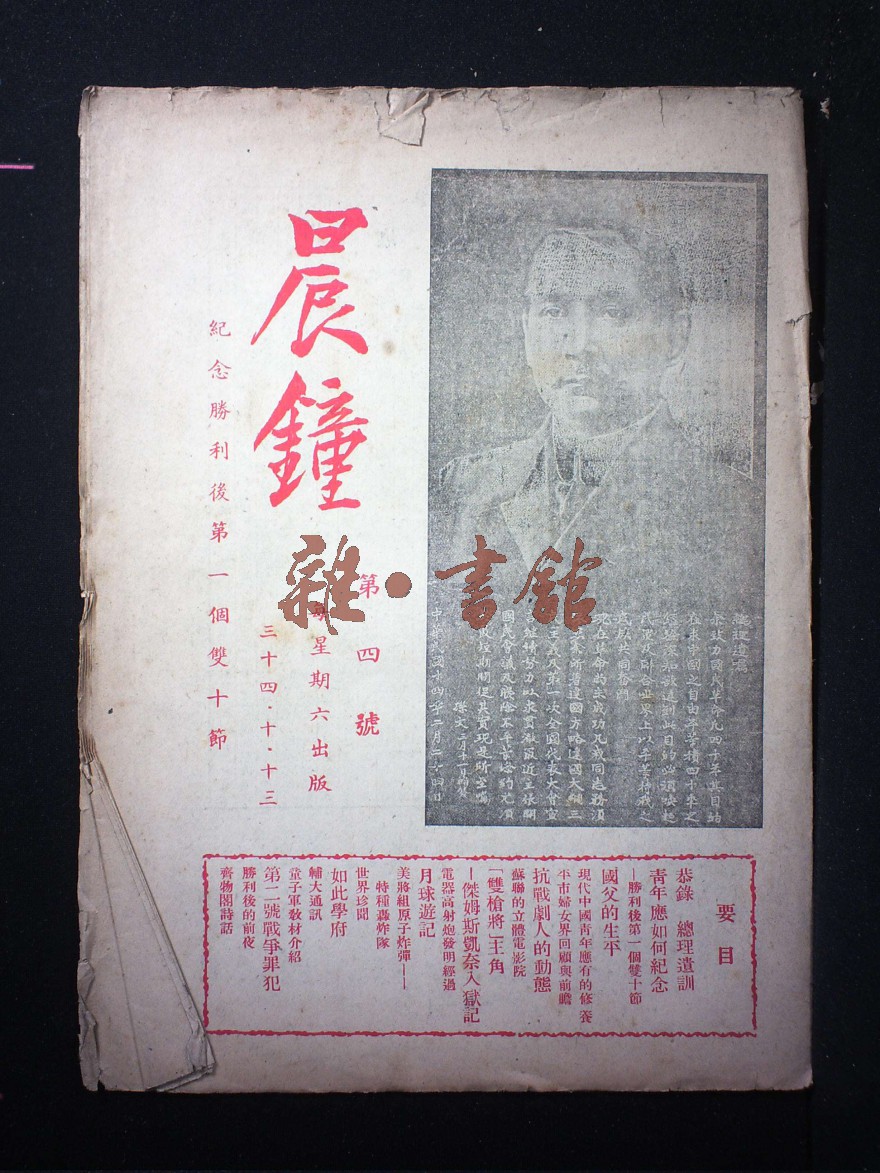 晨鐘
第四號
每星期六出版
三十四·十·十三
紀念勝利後第一個雙十節
雜·書館
總理遺囑
余致力國民革命凡四十年其目的
在求中國之自由平等積四十年之
經驗深知欲達到此目的必須喚起
民眾及聯合世界上以平等待我之
民族共同奮鬥
現在革命尚未成功凡我同志務須
國民會議及廢除不平等條約尤須
於最短期間促其實現是所至囑
要目
恭錄 總理遺訓
青年應如何紀念
—勝利後第一個雙十節
國父的生平
現代中國青年應有的修養
平市婦女界回顧與前瞻
抗戰劇人的動態
蘇聯的立體電影院
「雙槍將」主角
—傑姆斯凱奈入獄記
電器高射炮發明經過
月球遊記
美將組原子炸彈——
特種轟炸隊
世界珍聞
如此學府
輔大通訊
童子軍教材介紹
第二號戰爭罪犯
勝利後的前夜
齊物閣詩話